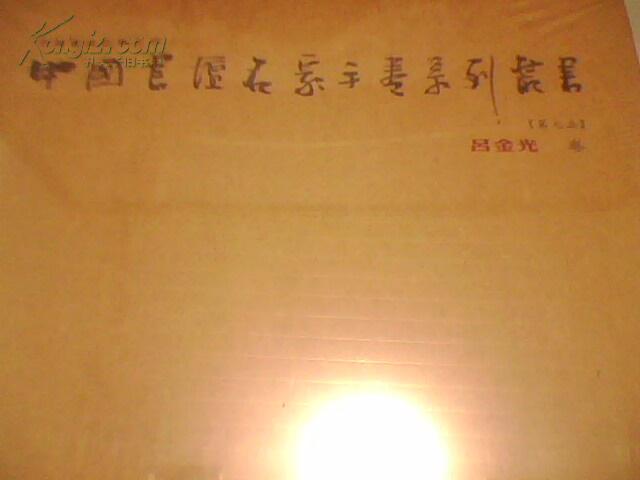 Kongfz.com
孔夫子旧书网
中国书法名家手卷系列丛书
吕金光 卷